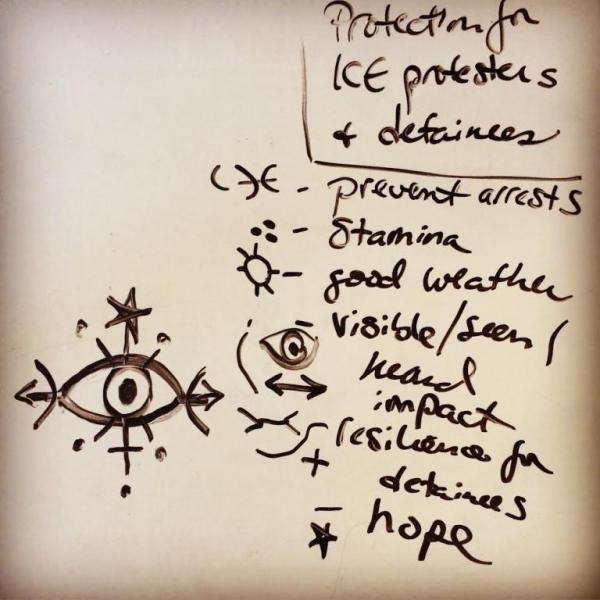 Protection for
ICE protesters
+ detainees
- prevent arrests
- Stamina
- good weather
- visible/seen/
heard
impact
resilience for
detainees
- hope